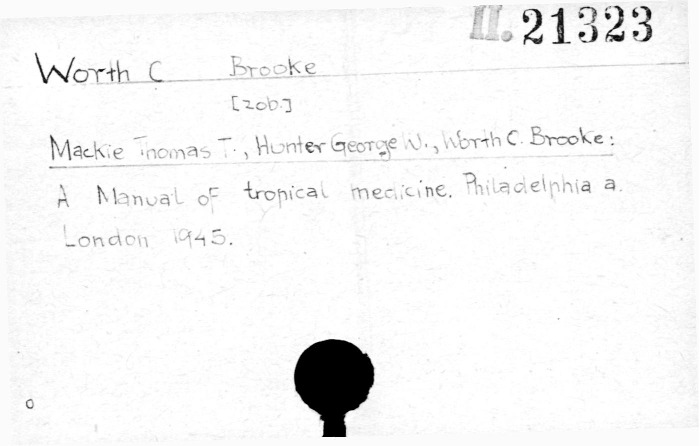 II. 21323
Worth C Brooke
[zob.]
Mackie Thomas T., Hunter George W., Worth C. Brooke:
A Manual of tropical medicine. Philadelphia a.
London 1945.